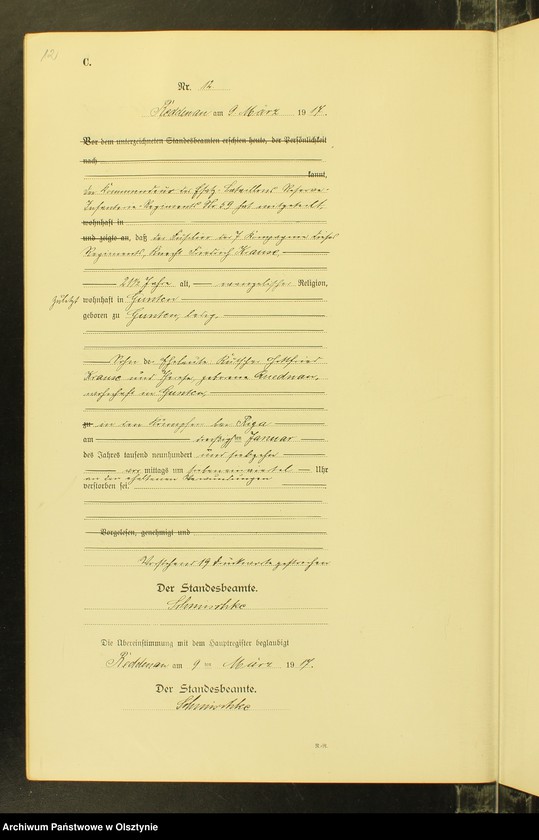 121
C.
Nr. 12
Röddenau am 9 März 1917.
Vor dem unterzeichneten Standesbeamten erschien heute, der Persönlichkeit
nach
kannt,
der Kommandeur des Ersatz-Bataillons Reserve-
Infanterie-Regiments Nr 59 hat mitgeteilt,
wohnhaft in
und zeigte an, daß der Füsilier der 7 Kompagnie
Regiments, Knecht Friedrich Krause,
21½ Jahre alt, evangelischer Religion,
zuletzt wohnhaft in Gunten
geboren zu Gunten, ledig
Sohn der Eheleute Gottfried
Krause und geborene
wohnhaft in Gunten,
zu in den Kämpfen bei Riga
am dreißigsten Januar
des Jahres tausend neunhundert und siebzehn
vor mittags um sieben einviertel Uhr
an den erhaltenen Verwundungen
verstorben sei.
Vorgelesen, genehmigt und
Vorstehend 19 Druckworte gestrichen
Der Standesbeamte.
Die Übereinstimmung mit dem Hauptregister beglaubigt
Röddenau am 9 ten März 1917.
Der Standesbeamte.
Archiwum Państwowe w Olsztynie